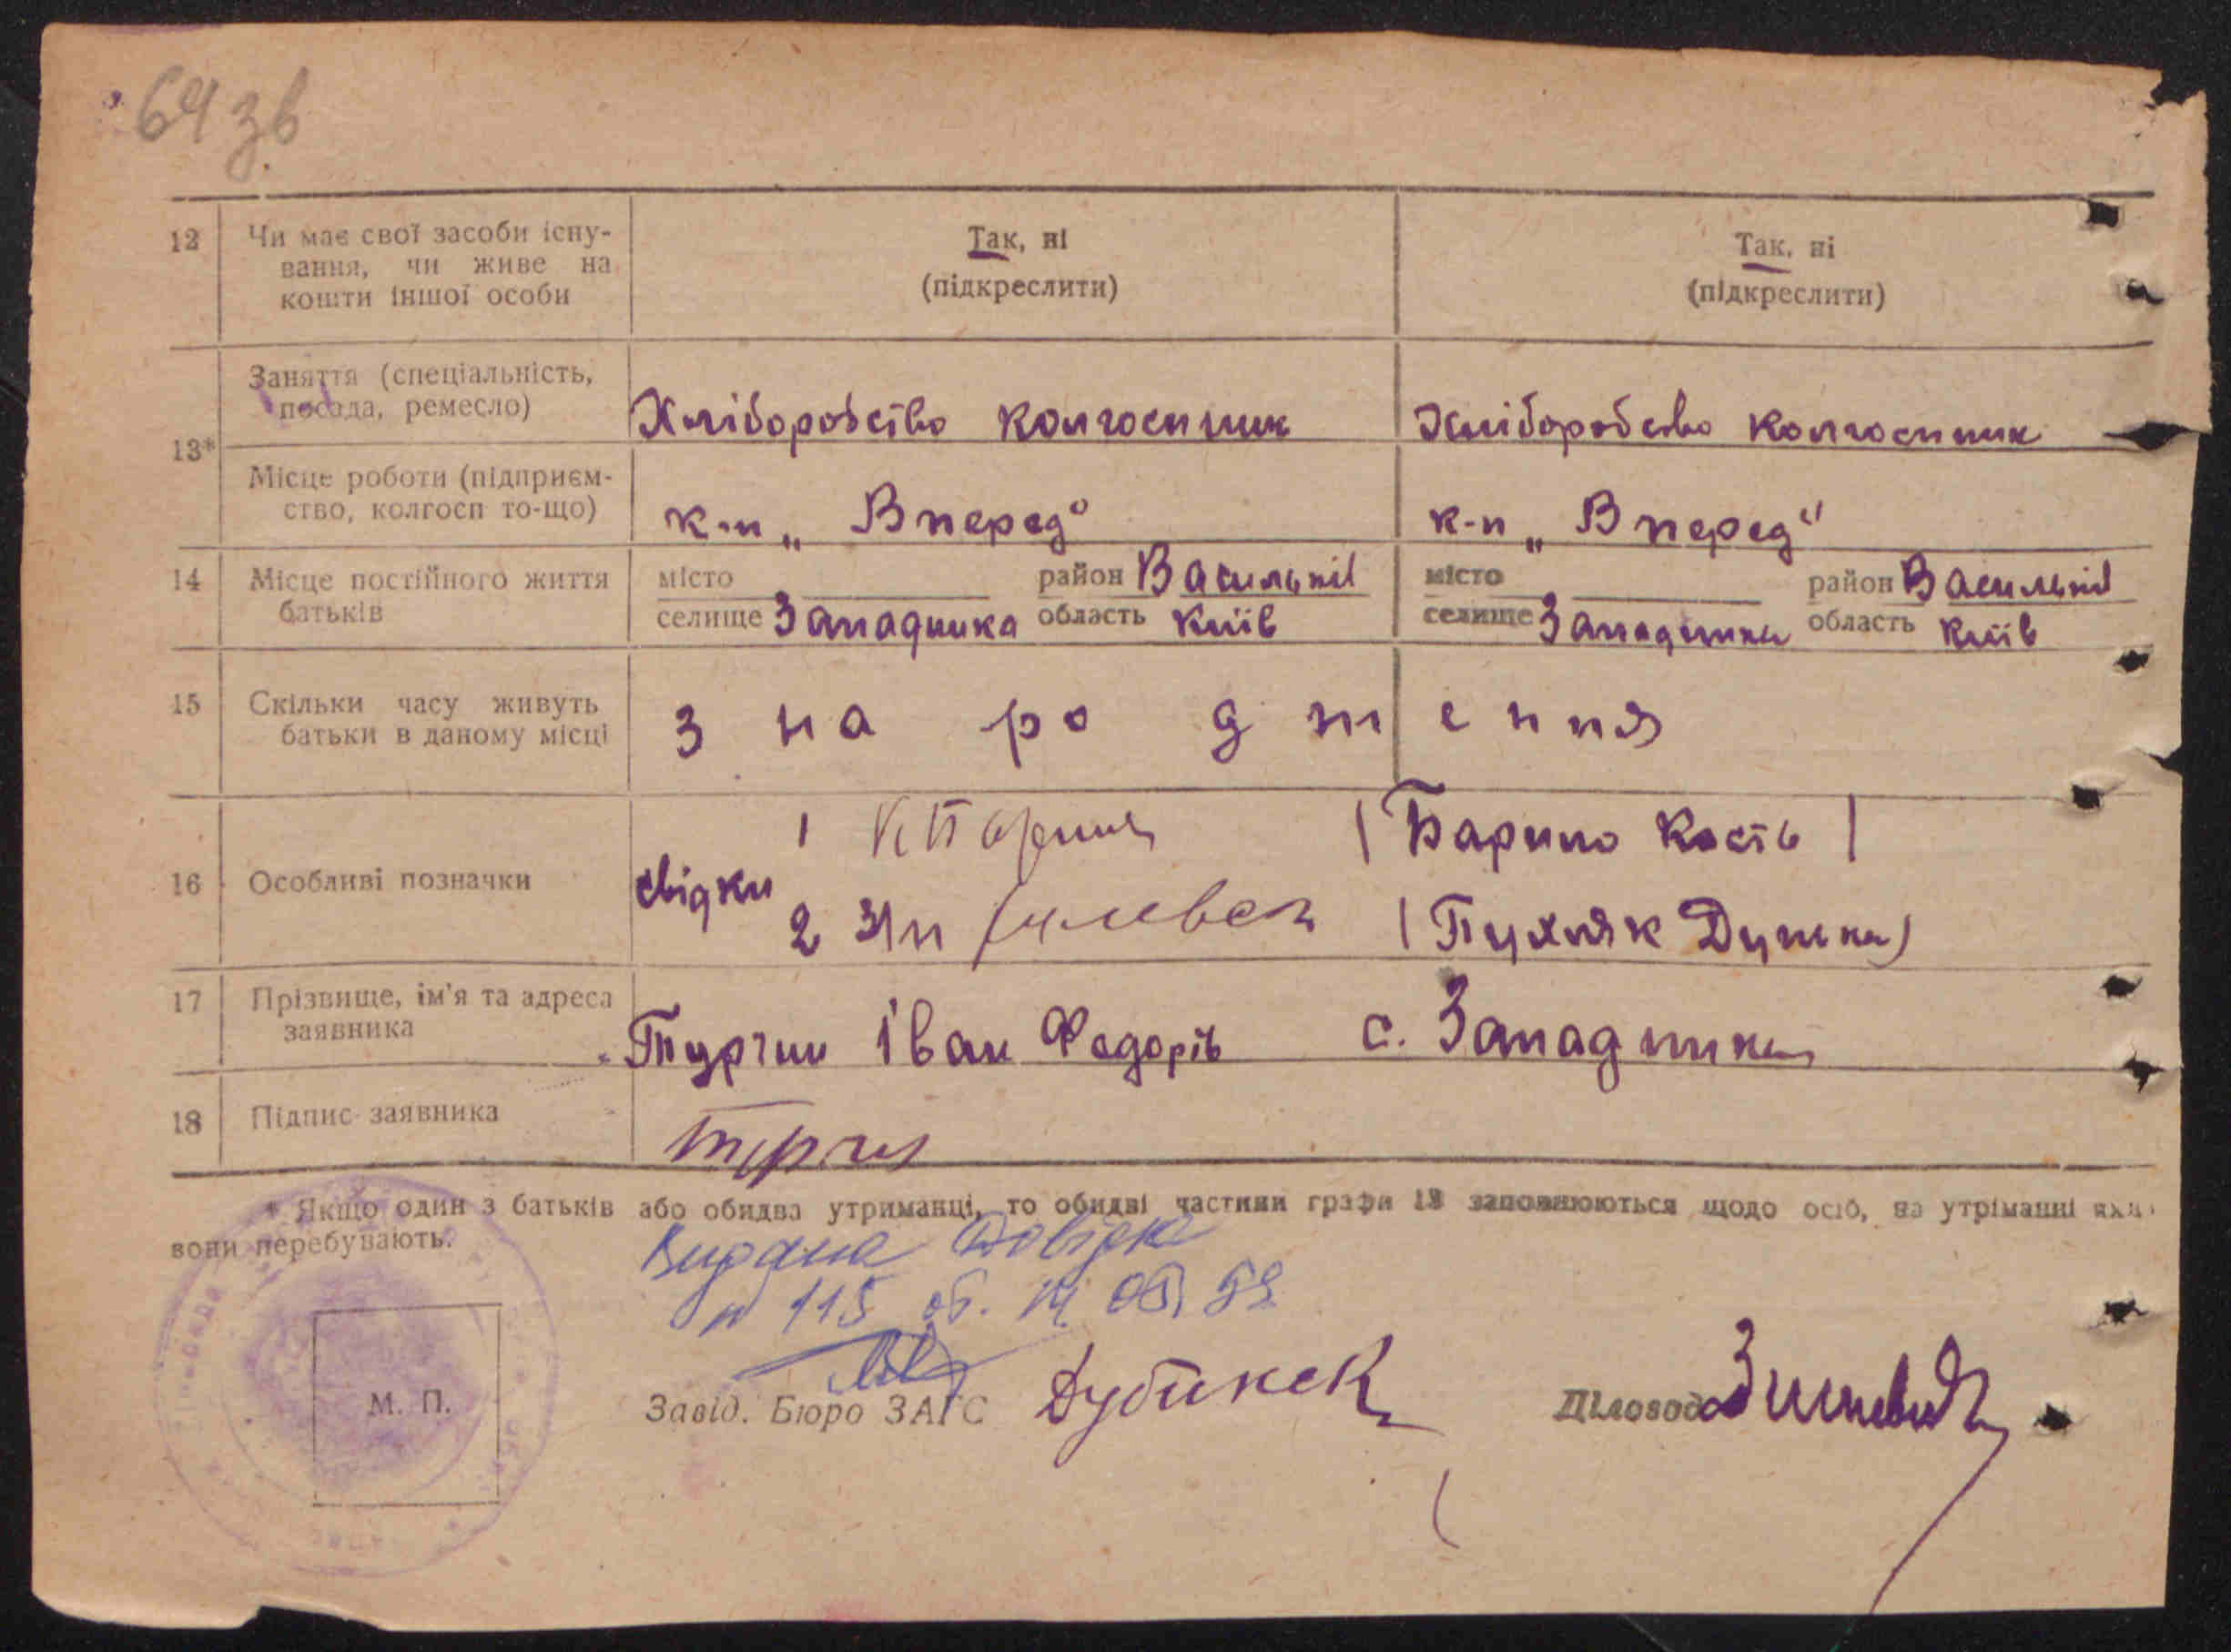 64 зв
12 Чи має свої засоби існу-
вання, чи живе на
кошти іншої особи
Так, ні
(підкреслити)
Так, ні
(підкреслити)
13*
Заняття (спеціальність,
посада, ремесло)
Хліборобство колгоспник
Хліборобство колгоспник
Місце роботи (підприєм-
ство, колгосп то-що)
к-п „Вперед“
к-п „Вперед“
14 Місце постійного життя
батьків
місто район Васильків
селище Западинка область Київ
місто район Васильків
селище Западинка область Київ
15 Скільки часу живуть
батьки в даному місці
з на ро д ж ення
16 Особливі позначки
свідки
1
(Барило Кость)
2
(Пухляк Дунька)
17 Прізвище, ім'я та адреса
заявника
Турчин Іван Федорів с. Западинка
18 Підпис заявника
Турчин
* Якщо один з батьків або обидва утриманці, то обидві частини графи 13 заповнюються щодо осіб, на утріманні яких
вони перебувають.
Видана довідка
№ 115 від
М. П.
Завід. Бюро ЗАГС
Діловод